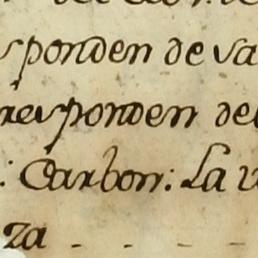 sponden de va
responden del
: Carbon: La v
za - - - -